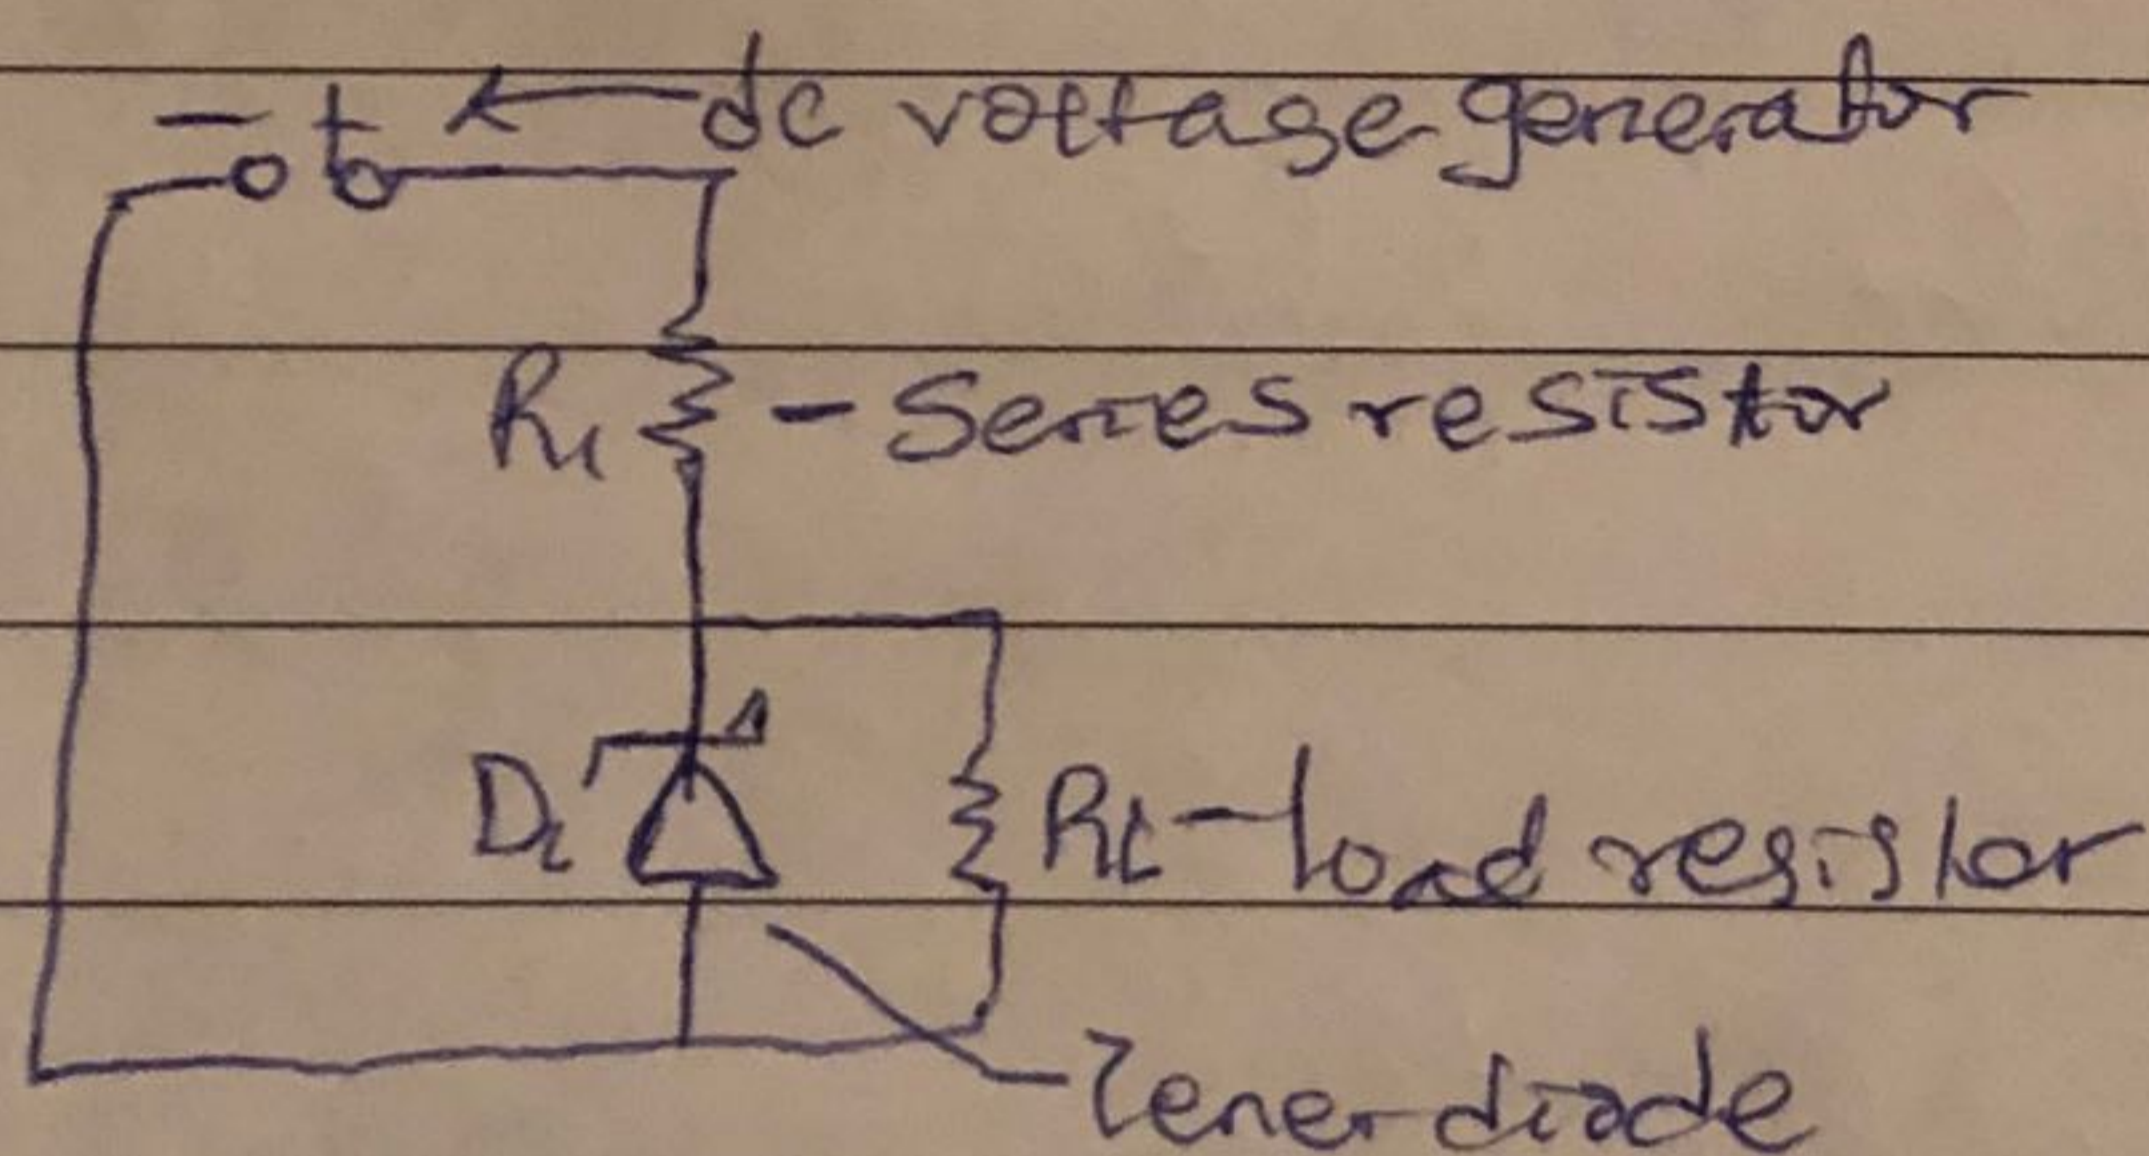 - + ← dc voltage generator
R1 - Series resistor
D1
RL - load resistor
Zener diode